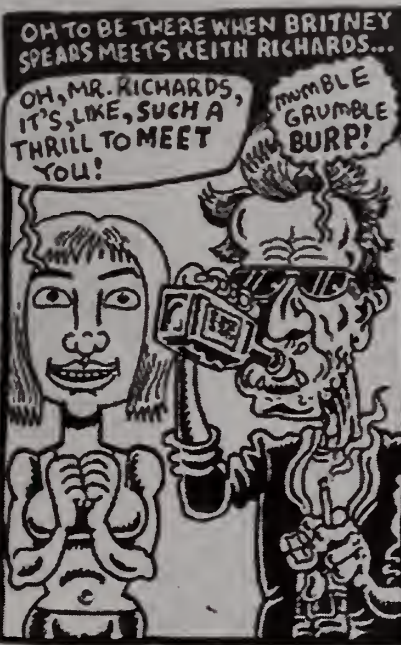 OH TO BE THERE WHEN BRITNEY
SPEARS MEETS KEITH RICHARDS...
OH, MR. RICHARDS,
IT'S, LIKE, SUCH A
THRILL TO MEET
YOU!
MUMBLE
GRUMBLE
BURP!